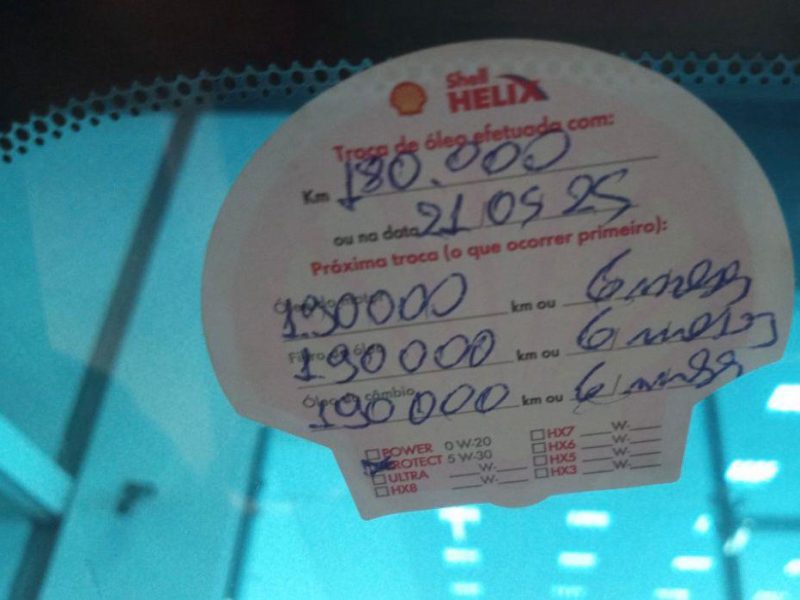 Shell
HELIX
Troca de óleo efetuada com:
Km 180.000
ou na data 21 05 25
Próxima troca (o que ocorrer primeiro):
Óleo do motor 190000 km ou 6 meses
Filtro de óleo 190 000 km ou 6 meses
Óleo de câmbio 190 000 km ou 6 meses
POWER 0 W-20 HX7 W-
PROTECT 5 W-30 HX6 W-
ULTRA W- HX5 W-
HX8 W- HX3 W-